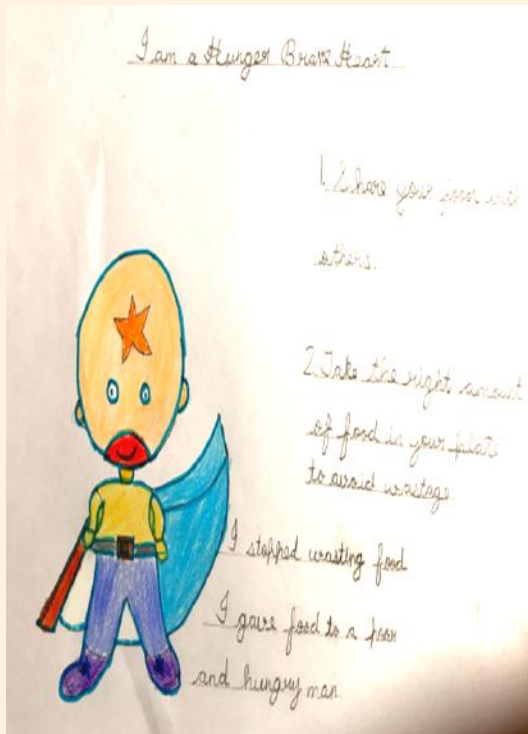 I am a Hunger Brave Heart
1. Share your food with
others.
2. Take the right amount
of food in your plate
to avoid wastage.
I stopped wasting food
I gave food to a poor
and hungry man.